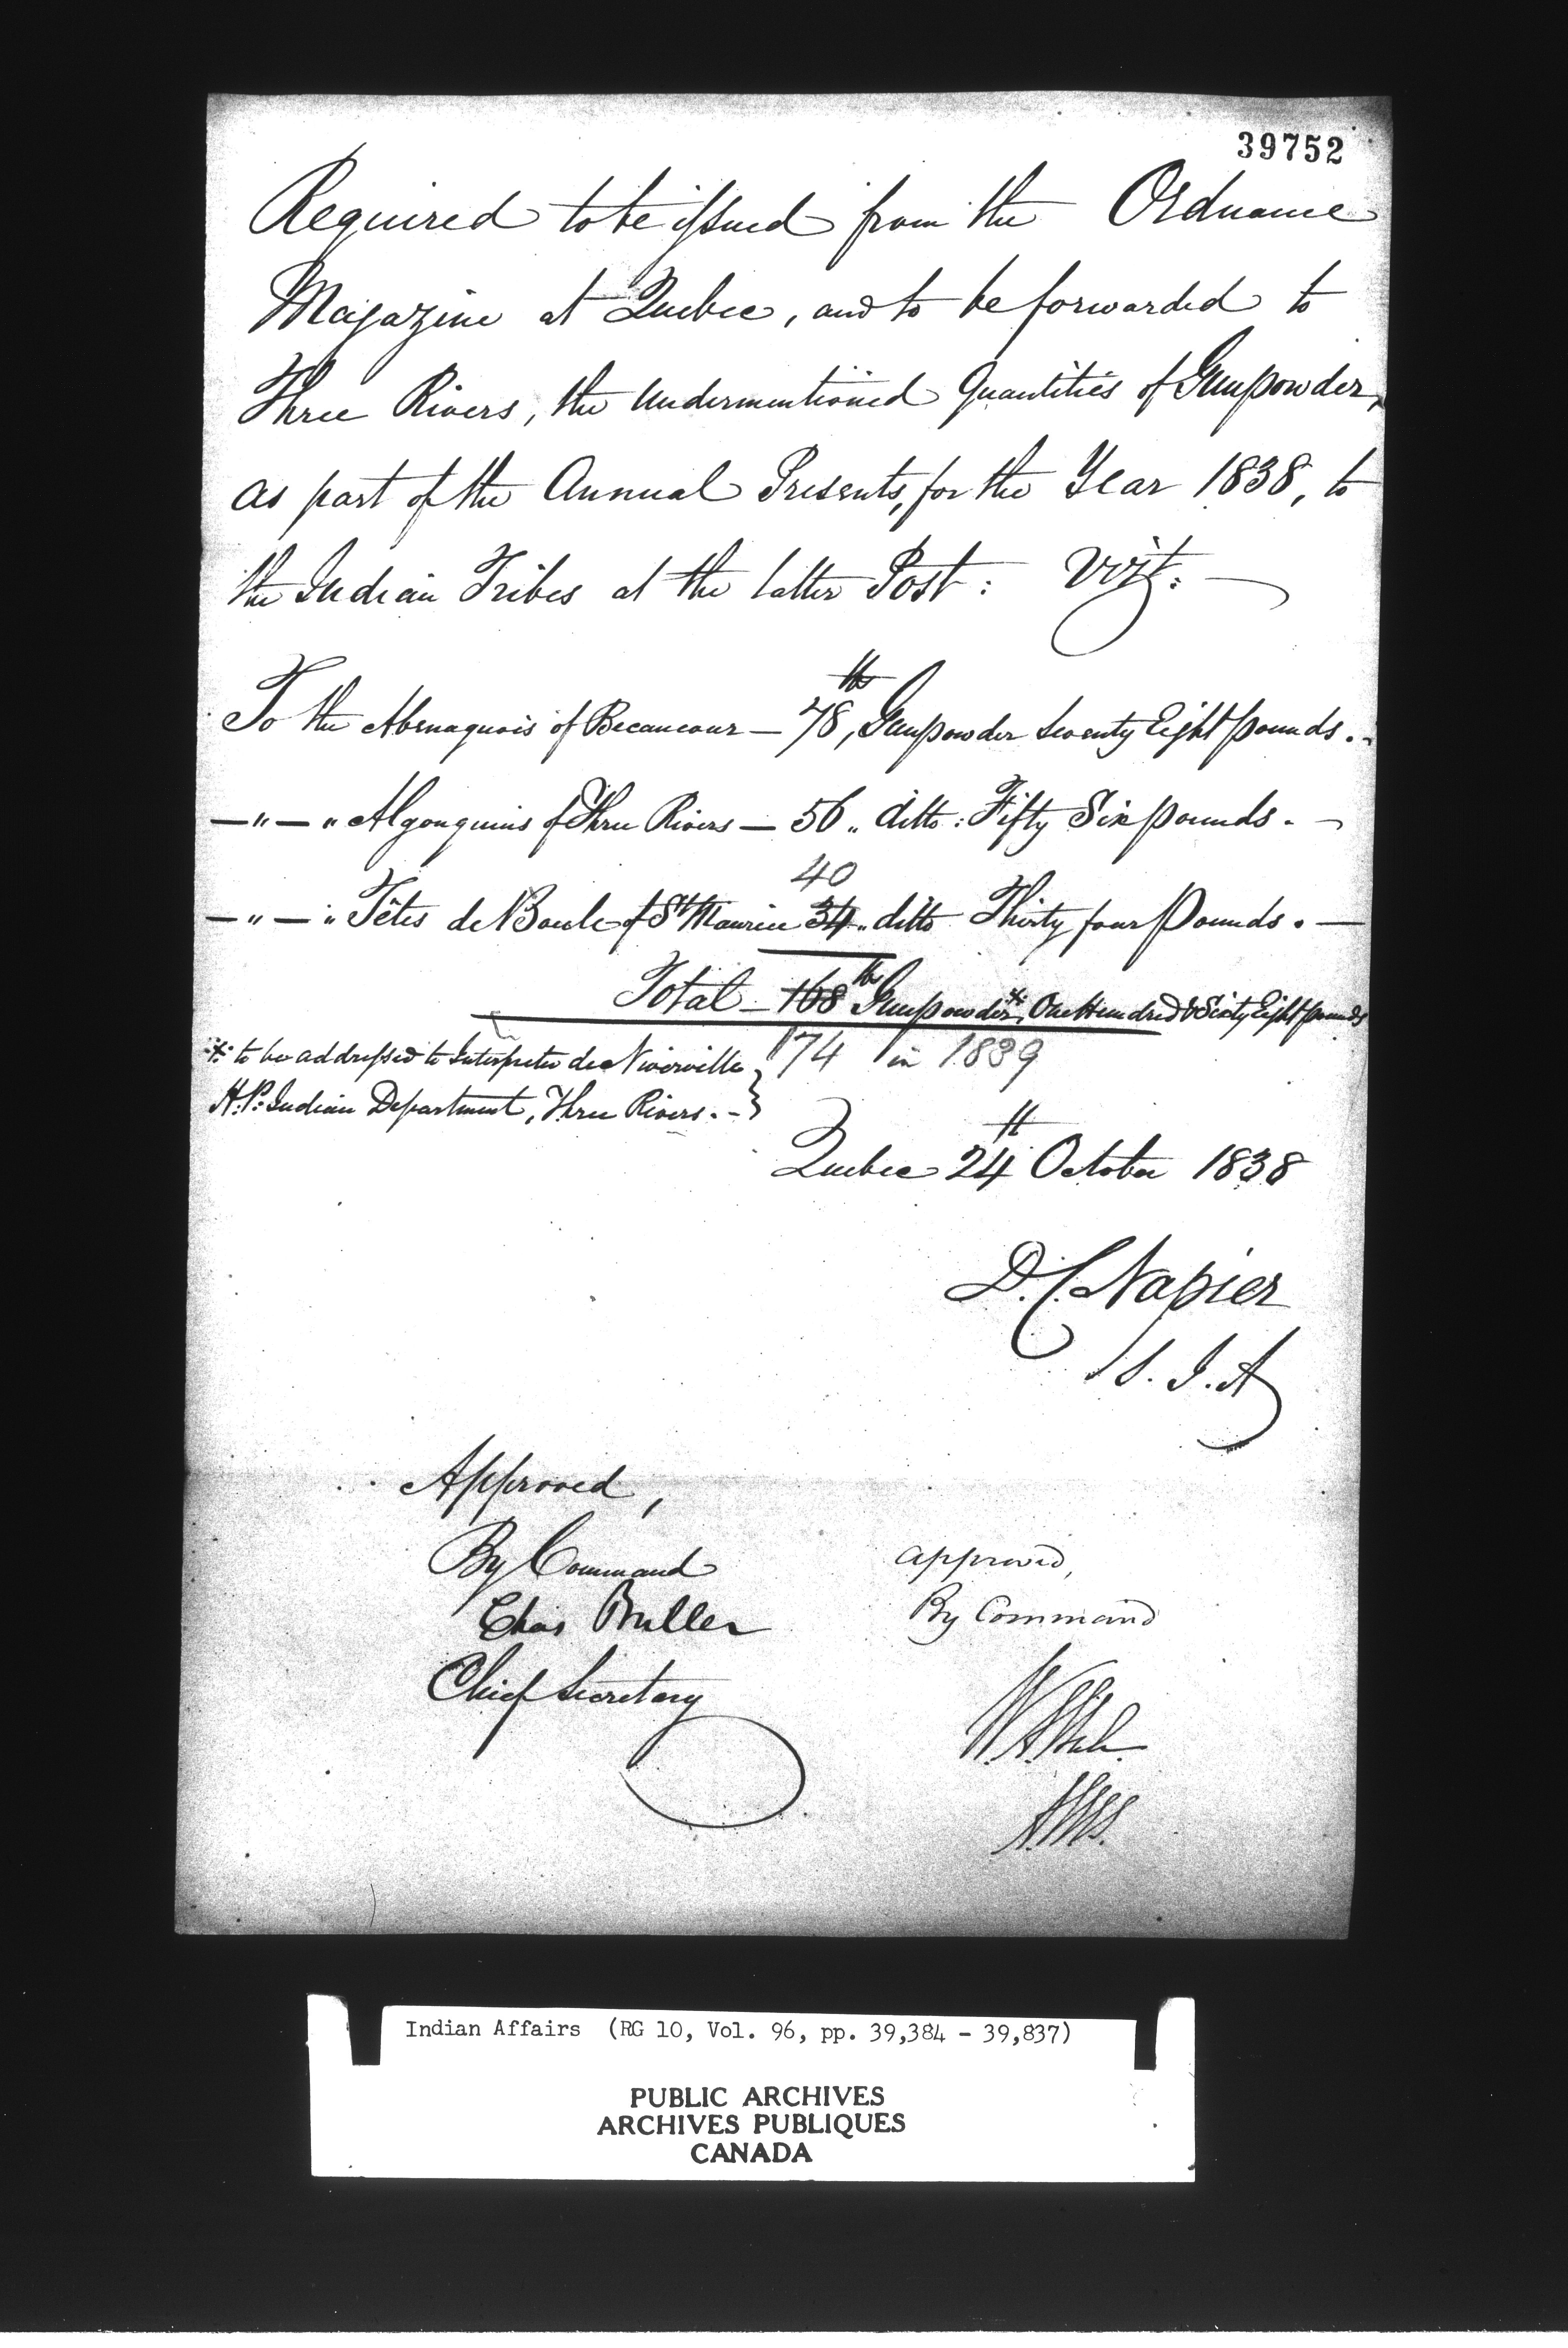 39752
Required to be issued from the Ordnance
Magazine at Quebec, and to be forwarded to
Three Rivers, the Undermentioned Quantities of Gunpowder,
as part of the Annual Presents, for the Year 1838, to
the Indian Tribes at the latter Post: Vizt:
lbs
To the Abenaquois of Becancour — 78, Gunpowder Seventy Eight pounds. -
— " — " Algonquins of Three Rivers — 56 " ditto: Fifty Six pounds. -
40
— " — " Têtes de Boule of St Maurice 34 " ditto Thirty four Pounds. —
Total — 168 lbs Gunpowder,* One Hundred & Sixty Eight pounds
174 in 1839
* to be addressed to Interpreter de Niverville
H.P: Indian Department, Three Rivers. -
Quebec 24th October 1838
D. C. Napier
S. I. A
Approved,
By Command
Chas Buller
Chief Secretary
approved,
By Command
Indian Affairs (RG 10, Vol. 96, pp. 39,384 - 39,837)
PUBLIC ARCHIVES
ARCHIVES PUBLIQUES
CANADA